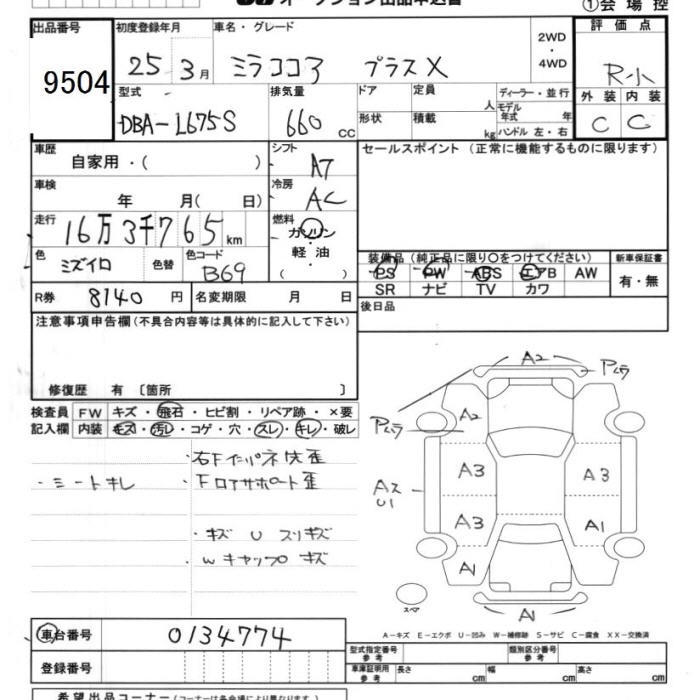 オークション出品申込書
①会場控
出品番号 初度登録年月 車名・グレード 評価点
9504 25年3月 ミラココア プラスX 2WD・4WD R-小
型式 排気量 ドア 定員 人 ディーラー・並行 外装 内装
DBA-L675S 660 cc 形状 積載 kg モデル年式 年 ハンドル 左・右 C C
車歴 自家用・( ) シフト AT セールスポイント (正常に機能するものに限ります)
車検 年 月( 日) 冷房 AC
走行 16万3千765km 燃料 ガソリン・軽油・( )
色 ミズイロ 色替 色コード B69
装備品 (純正品に限り○をつけてください) 新車保証書
PS PW ABS エアB AW 有・無
SR ナビ TV カワ
R券 8140円 名変期限 月 日 後日品
注意事項申告欄 (不具合内容等は具体的に記入して下さい)
修復歴 有 〔箇所 〕
検査員 FW キズ・飛石・ヒビ割・リペア跡・×要
記入欄 内装 キズ・汚レ・コゲ・穴・スレ・キレ・破レ
・右Fインパネ伏歪
・シートキレ ・Fロアサポート歪
・キズ U スリキズ
・Wキャップ キズ
A2
A2
A3 A3
A2
U1
A3 A1
A1
スペア
A1
A－キズ E－エクボ U－凹み W－補修跡 S－サビ C－腐食 XX－交換済
車台番号 0134774
型式指定番号 参考 類別区分番号 参考
登録番号
車庫証明用 参考 長さ cm 幅 cm 高さ cm
希望出品コーナー (コーナーは各会場により異なります)